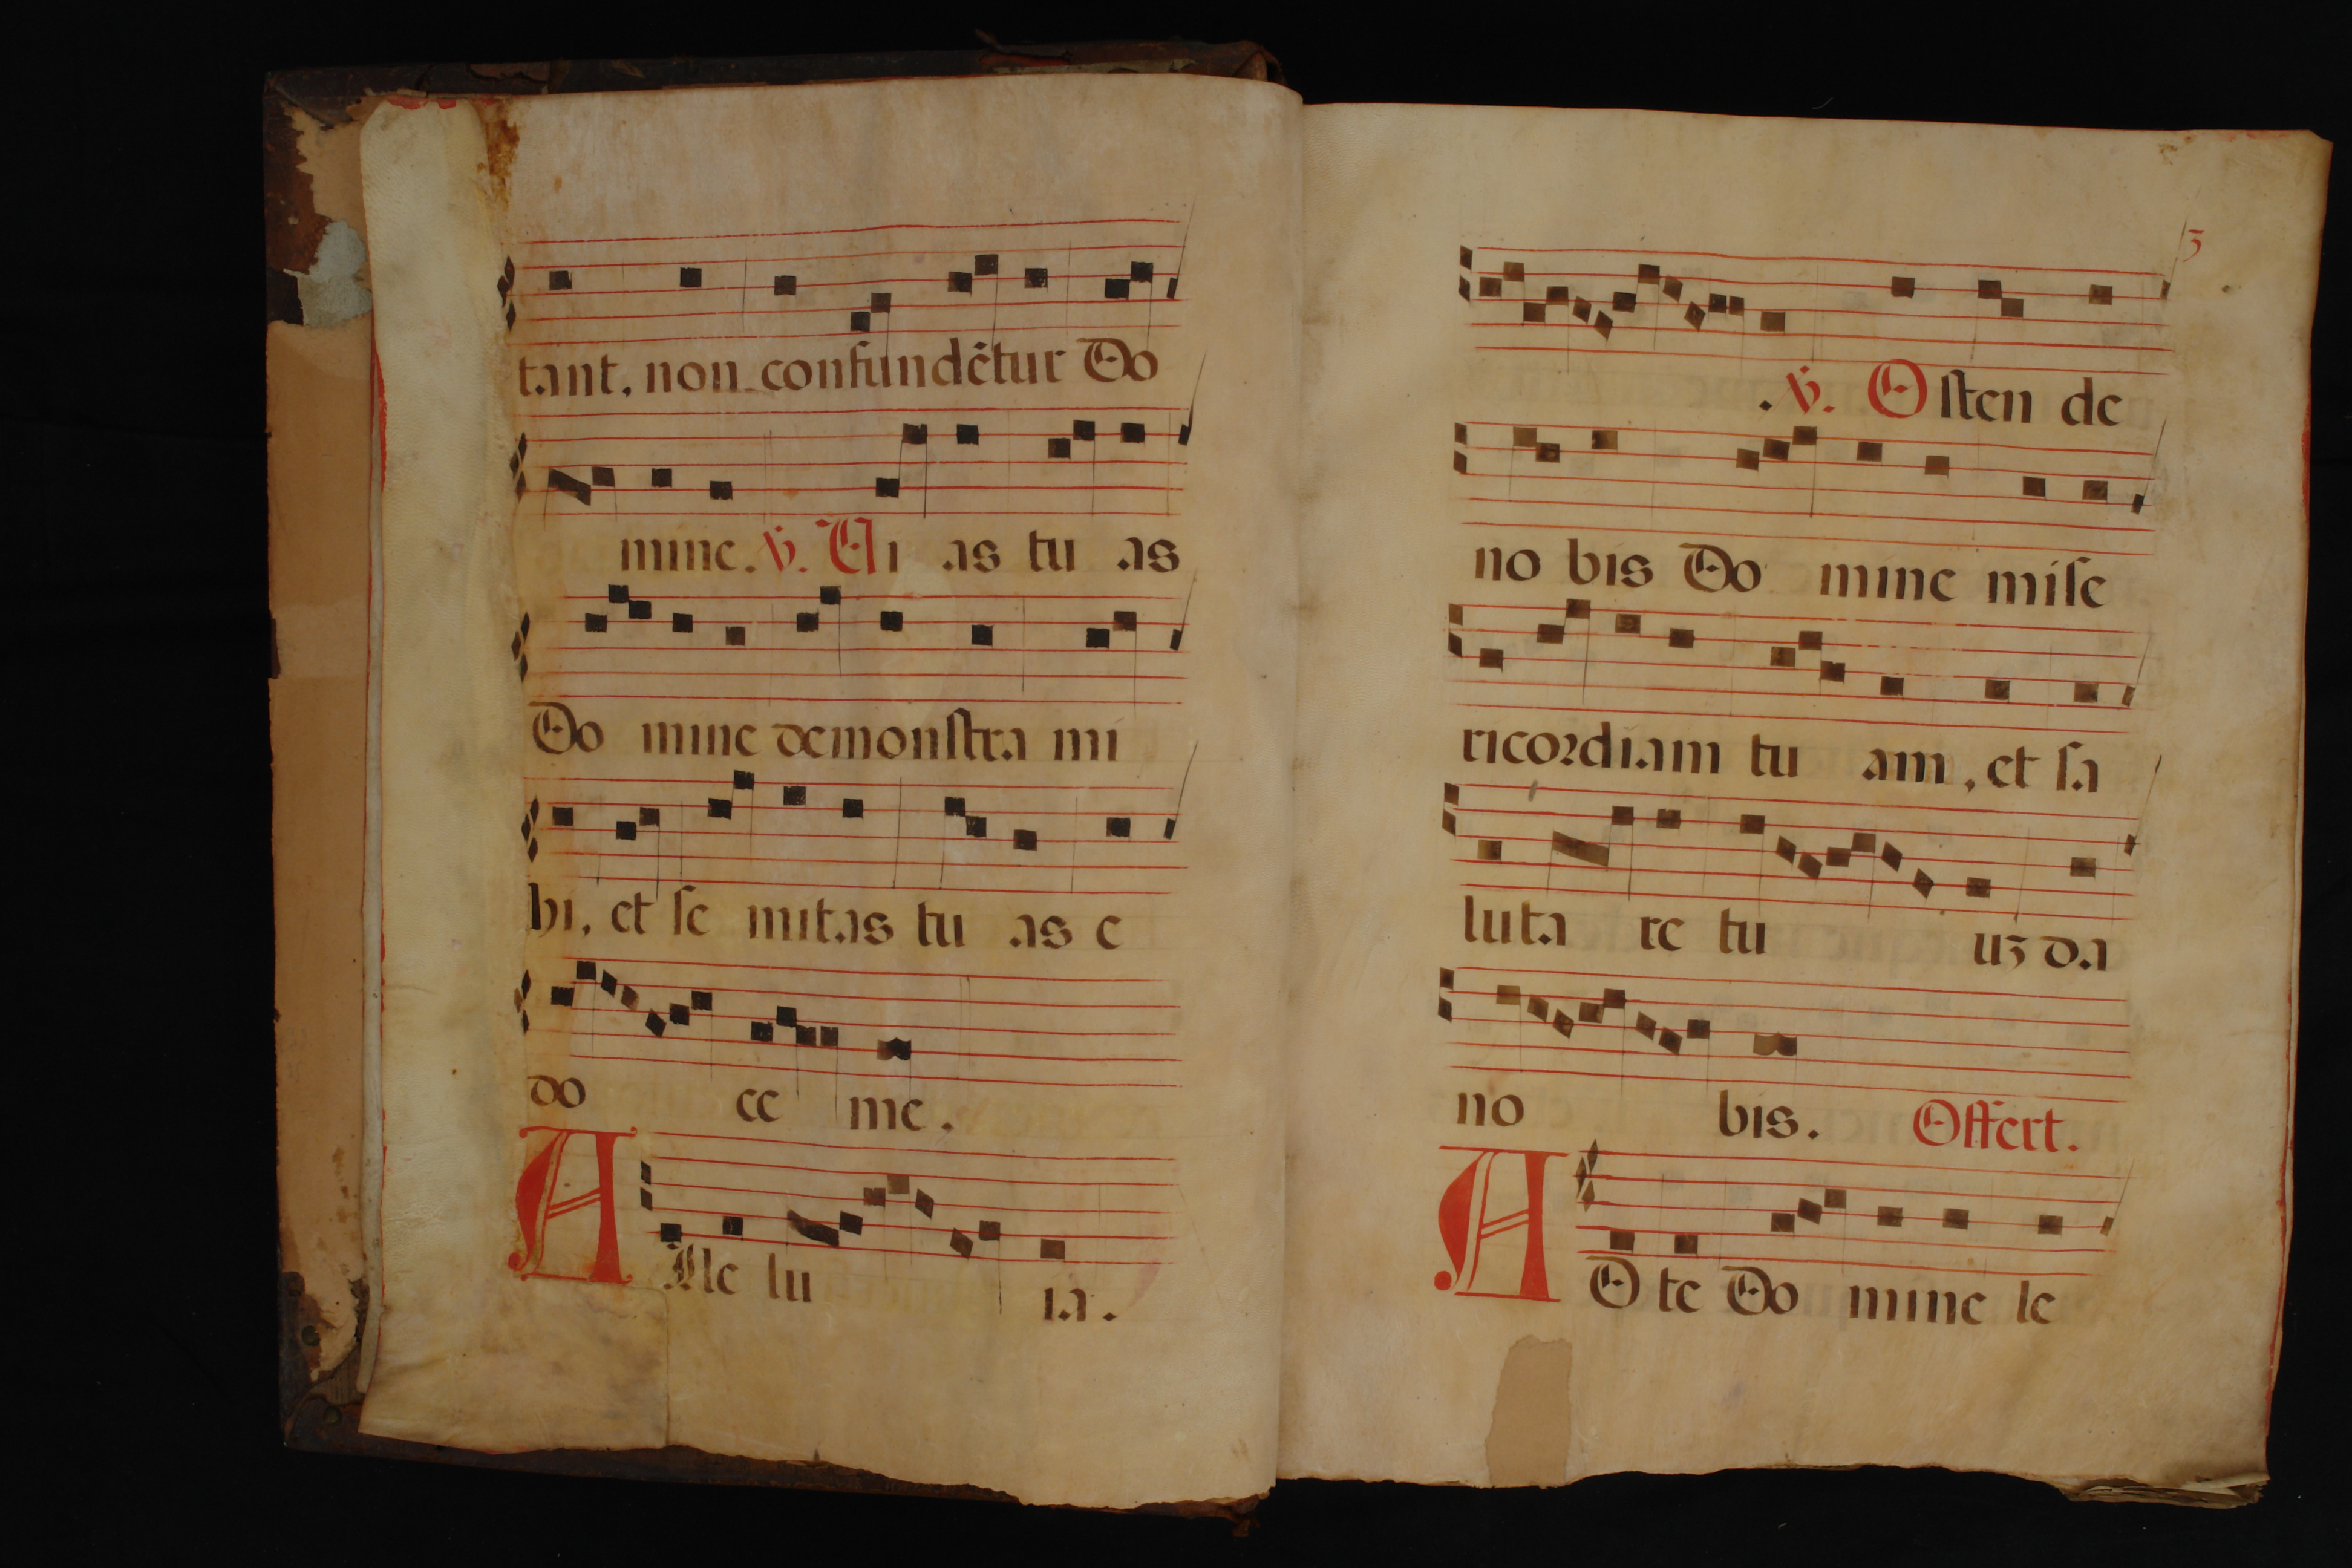 tant, non confundẽtur Do
mine. ℣. Vi as tu as
Do mine demonſtra mi
bi, et ſe mitas tu as e
do ce me.
A lle lu ia.
3
℣. Oſten de
no bis Do mine miſe
ricoꝛdiam tu am, et ſa
luta re tu uꝫ da
no bis. Offert.
A D te Do mine le